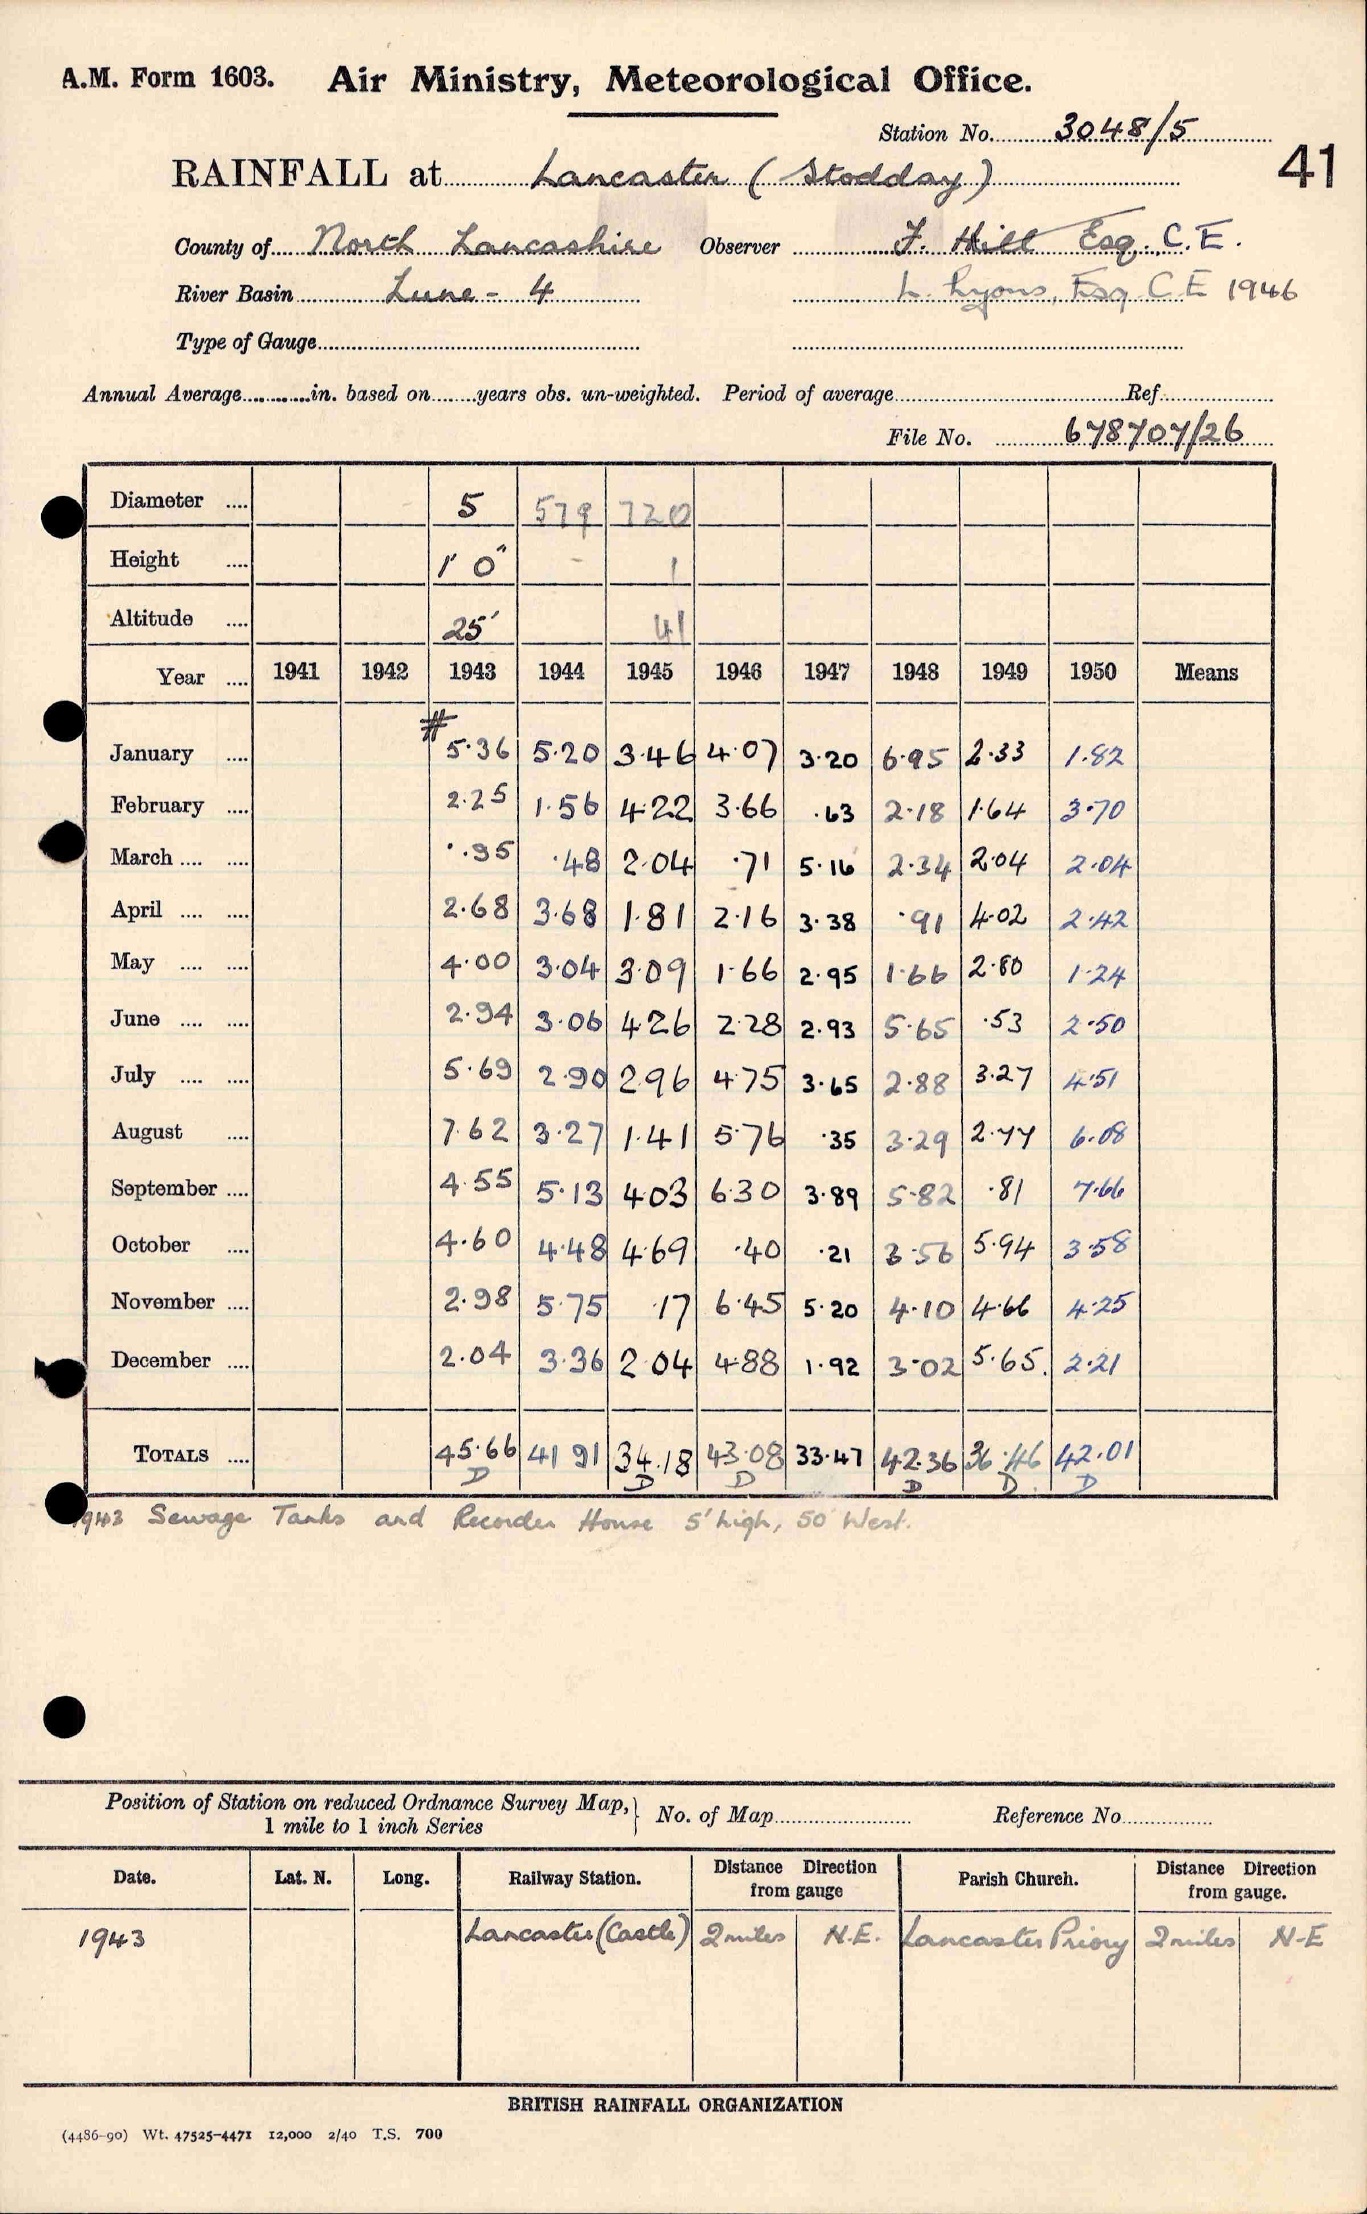 A.M. Form 1603. Air Ministry, Meteorological Office.
Station No. 3048/5
41
RAINFALL at Lancaster (Stodday)
County of North Lancashire Observer F. Hill Esq. C.E.
River Basin Lune - 4 L. Lyons, Esq C.E 1946
Type of Gauge
Annual Average in. based on years obs. un-weighted. Period of average Ref.
File No. 678707/26
Diameter .... 5 579 720
Height .... 1' 0" - 1
Altitude .... 25' 41
Year .... 1941 1942 1943 1944 1945 1946 1947 1948 1949 1950 Means
#
January .... 5.36 5.20 3.46 4.07 3.20 6.95 2.33 1.82
February .... 2.25 1.56 4.22 3.66 .63 2.18 1.64 3.70
March .... .... .95 .48 2.04 .71 5.16 2.34 2.04 2.04
April .... .... 2.68 3.68 1.81 2.16 3.38 .91 4.02 2.42
May .... .... 4.00 3.04 3.09 1.66 2.95 1.66 2.80 1.24
June .... .... 2.94 3.06 4.26 2.28 2.93 5.65 .53 2.50
July .... .... 5.69 2.90 2.96 4.75 3.65 2.88 3.27 4.51
August .... 7.62 3.27 1.41 5.76 .35 3.29 2.77 6.08
September .... 4.55 5.13 4.03 6.30 3.89 5.82 .81 7.66
October .... 4.60 4.48 4.69 .40 .21 3.56 5.94 3.58
November .... 2.98 5.75 .17 6.45 5.20 4.10 4.66 4.25
December .... 2.04 3.36 2.04 4.88 1.92 3.02 5.65. 2.21
TOTALS .... 45.66 41 91 34.18 43.08 33.47 42.36 36.46 42.01
D D D D D D
1943 Sewage Tanks and Recorder House 5' high, 50' West.
Position of Station on reduced Ordnance Survey Map, } No. of Map Reference No.
1 mile to 1 inch Series
Date. Lat. N. Long. Railway Station. Distance Direction from gauge Parish Church. Distance Direction from gauge.
1943 Lancaster (Castle) 2 miles N.E. Lancaster Priory 2 miles N-E
BRITISH RAINFALL ORGANIZATION
(4486-90) Wt. 47525-4471 12,000 2/40 T.S. 700